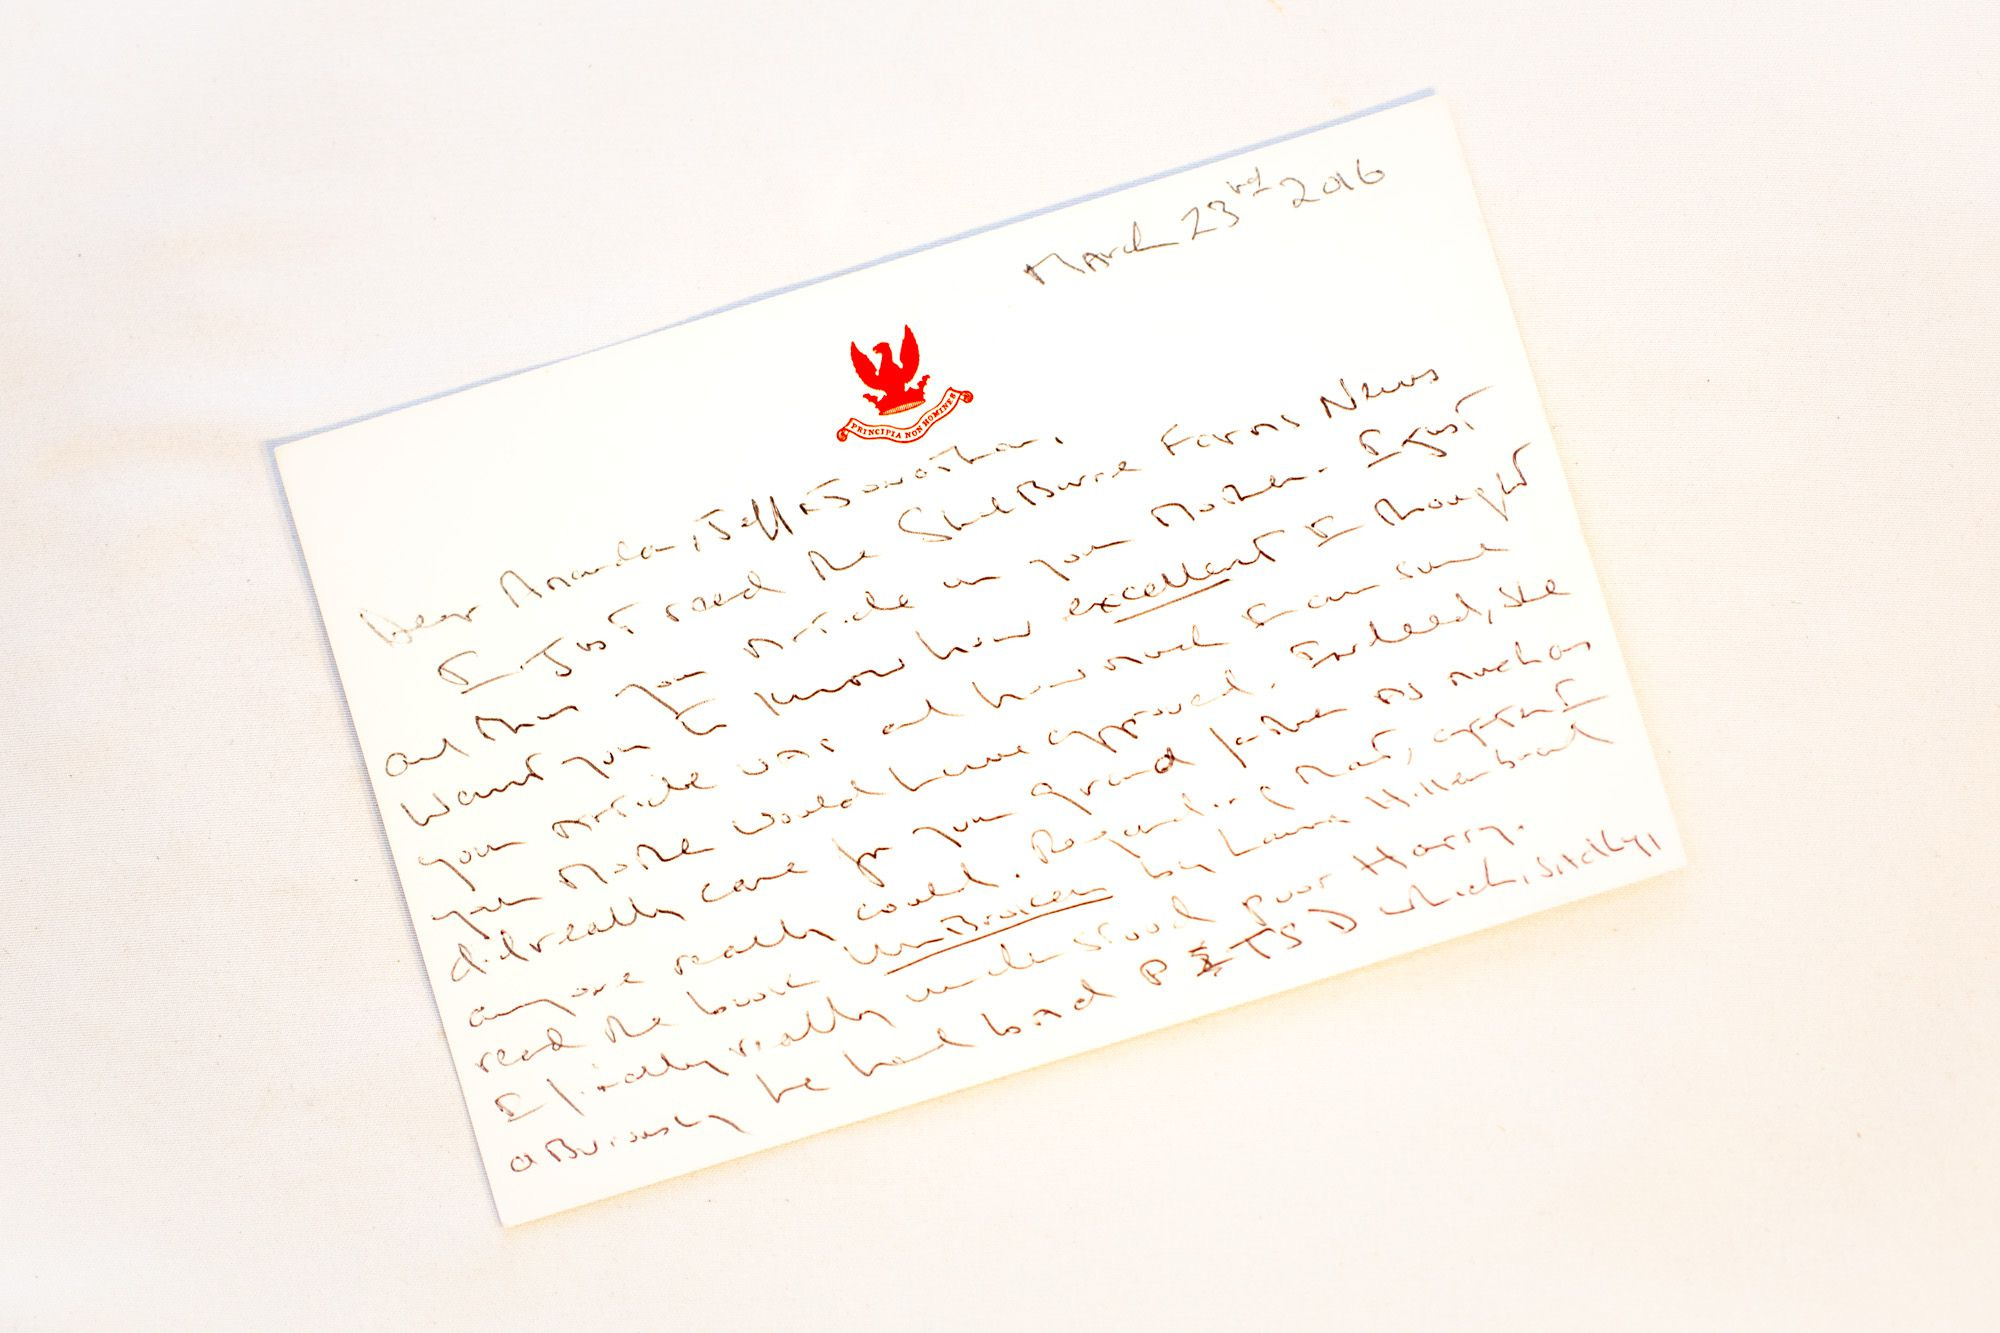 March 23rd 2016
PRINCIPIA NON HOMINES
Dear Amanda, Jeff & Jonathan,
I just read the ShelBurne Farms News
and then your Article on your Mother. I just
Want you to know how excellent I thought
your Article was and how much I am sure
your Mother would have approved. Indeed, she
did really care for your grand father as much as
anyone really could. Regarding that, after I
read the book UnBroken by Laura Hillenbrand
I finally really understood poor Harry.
oBviously he had bad PTSD which, sadly,